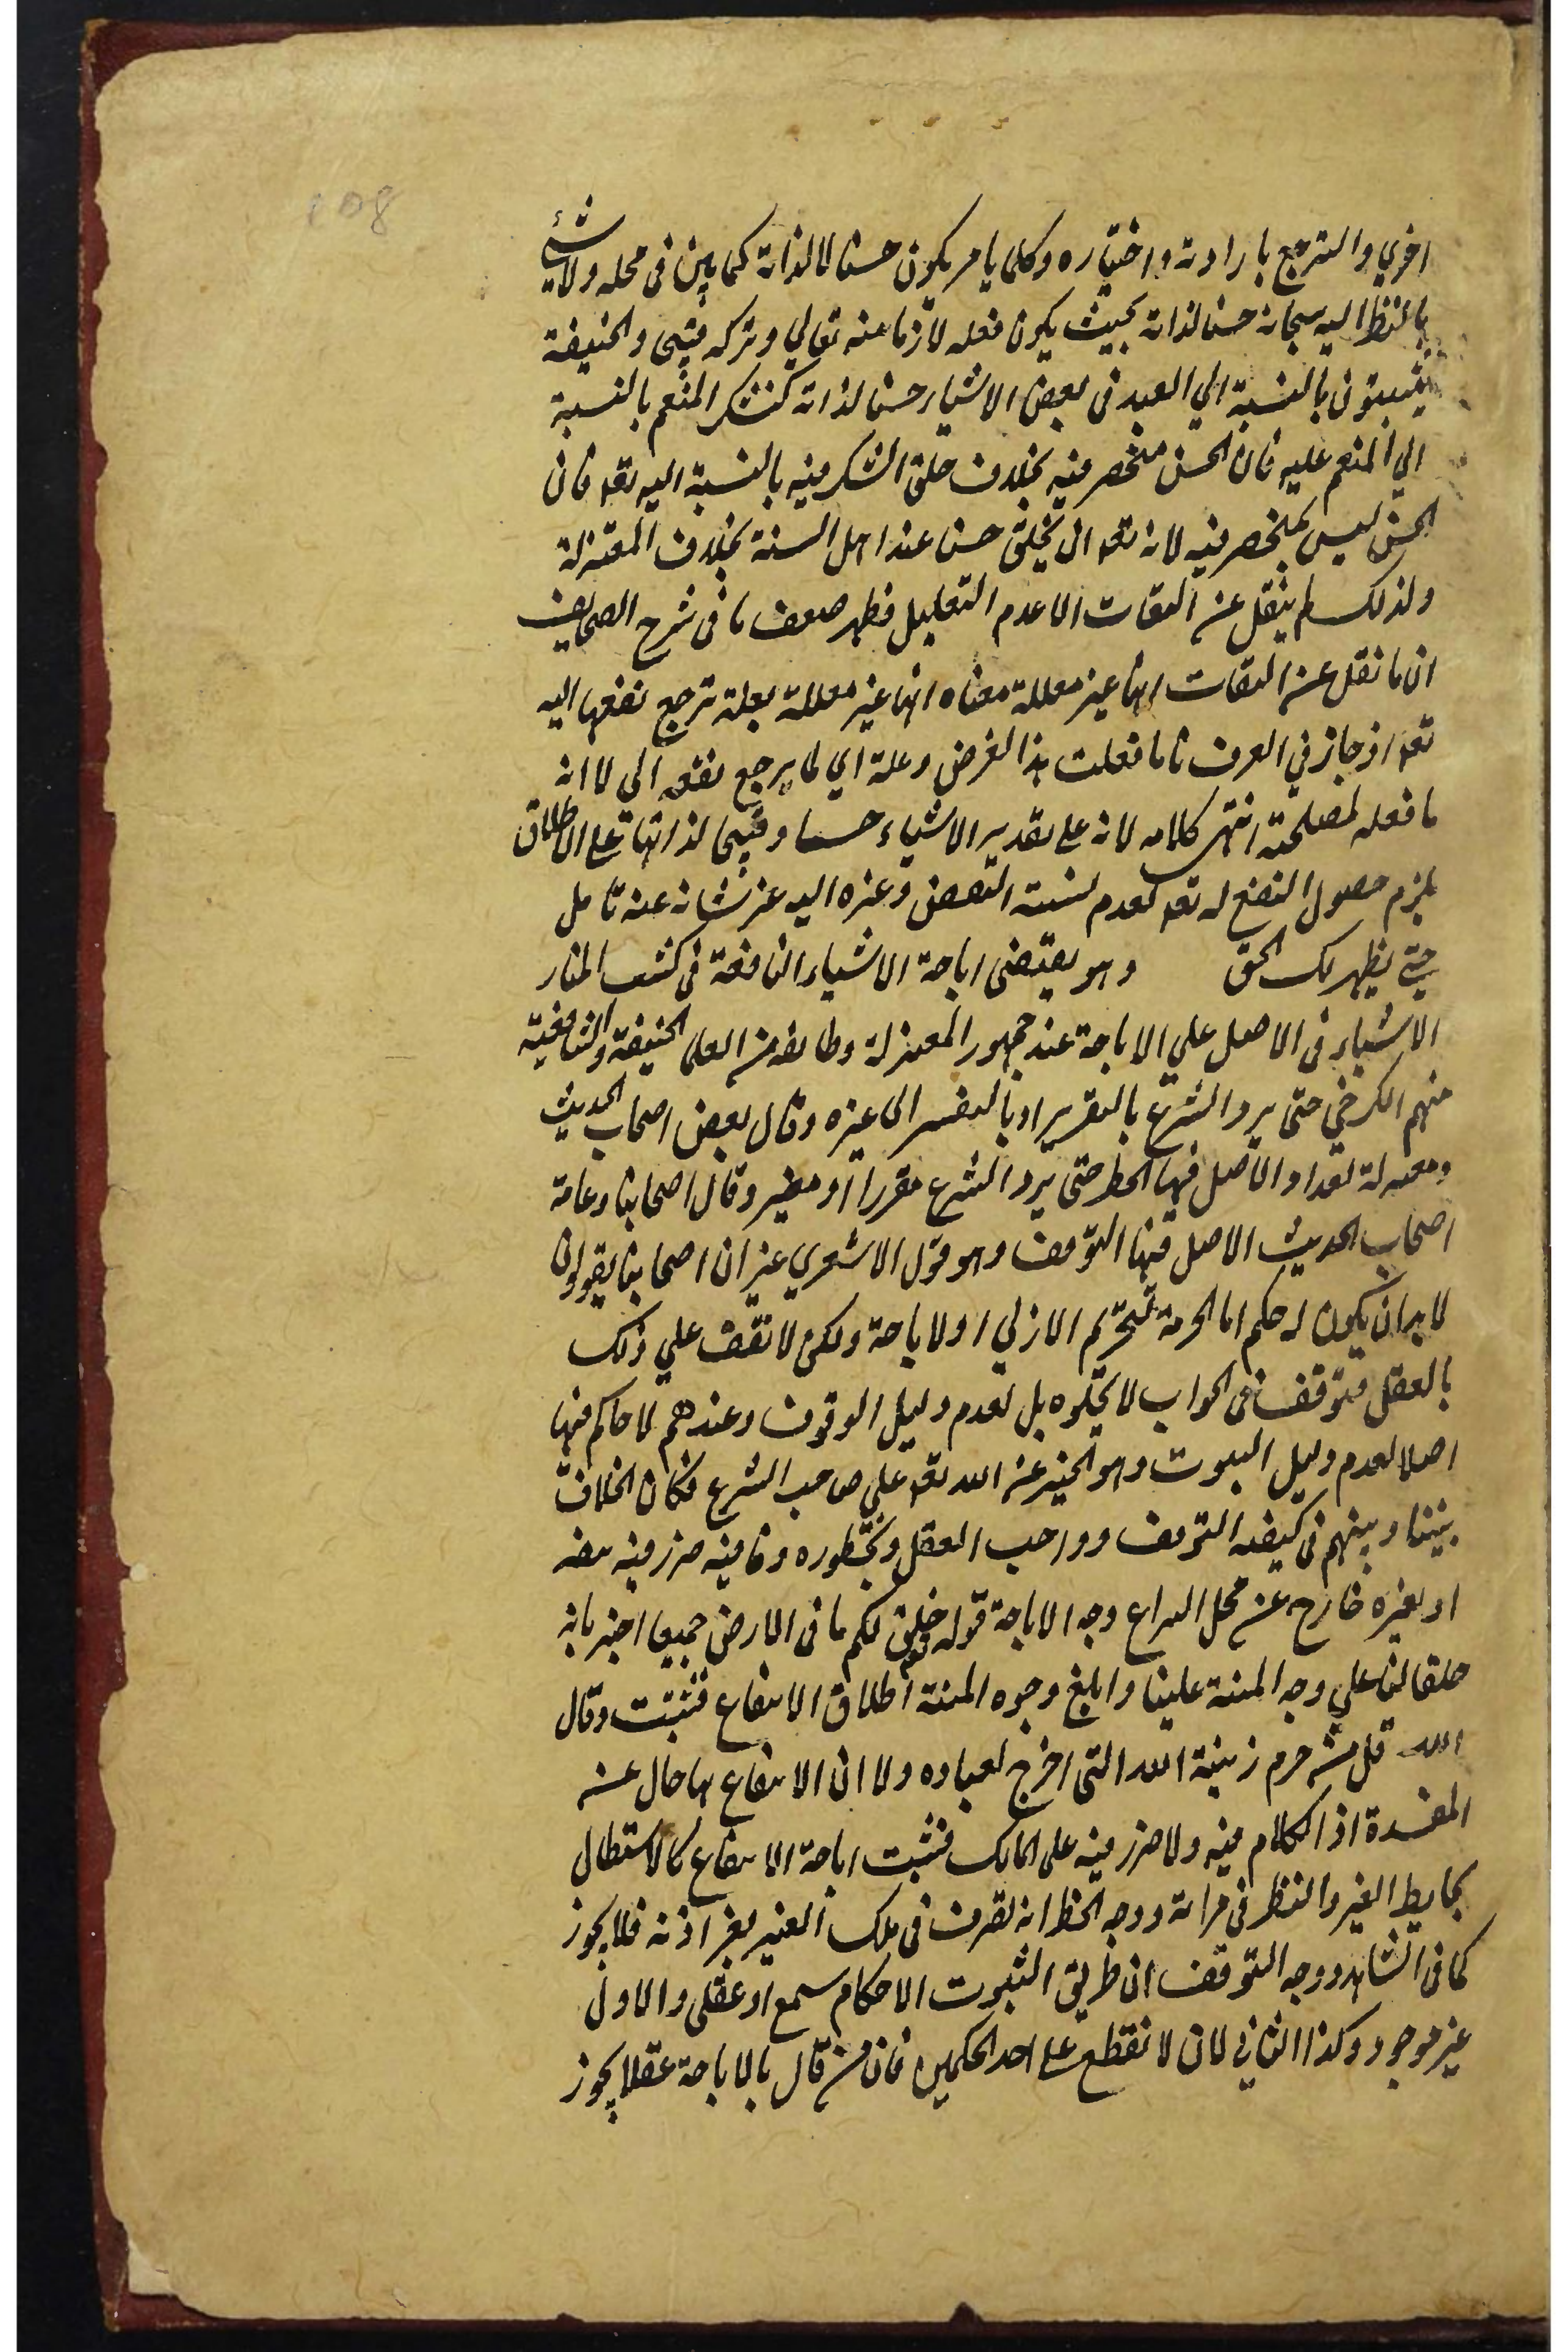 108
اخري والترجح بارادته واختياره وكلما يامر يكون حسنا لا لذاته كما بين في محله ولا شئ
بالنظر اليه سبحانه حسنا لذاته بحيث يكون فعله لازما منه تعالي وتركه قبيحا والحنيفة
يثبتون بالنسبة الي العبد في بعض الاشياء حسنا لذاته كشكر المنعم بالنسبة
الي المنعم عليه فان الحسن منحصر فيه بخلاف خلق الشكر فيه بالنسبة اليه تعه فان
الحسن ليس بمنحصر فيه لانه تعه ان يخلق حسنا عند اهل السنة بخلاف المعتزلة
ولذلك لم ينقل عن الثقات الا عدم التعليل فظهر ضعف ما في شرح الصحايف
ان ما نقل عن الثقات انها غير معللة معناه انها غير معللة بعلة ترجع نفعها اليه
تعه اذ جاز في العرف ما فعلت هذا لغرض وعلة اي لما يرجع نفعه الي لا انه
ما فعله لمصلحة انتهى كلامه لانه على تقدير الاشياء حسنا وقبيحا لذاتها على الاطلاق
يلزم حصول النفع له تعه لعدم نسبة النقص وغيره اليه عز شانه عنه تامل
حتي يظهر لك الحق وهو يقتضي اباحة الاشياء النافعة في كشف المنار
الاشياء في الاصل علي الاباحة عند جمهور المعتزلة وطايفة من العلما الحنيفة والشافعية
منهم الكرخي حتى يرد الشرع بالتقرير او بالتغير الى غيره وقال بعض اصحاب الحديث
ومعتزلة بغداد الاصل فيها الحظر حتى يرد الشرع مقررا او مغير وقال اصحابنا وعامة
اصحاب الحديث الاصل فيها التوقف وهو قول الاشعري غير ان اصحابنا يقولون
لا بد ان يكون له حكم اما الحرمة بتحريم الازلي او لاباحة ولكن لا نقف علي ذلك
بالعقل فيتوقف في الجواب لا لخلوه بل لعدم دليل الوقوف وعندهم لا حاكم فيها
اصلا لعدم دليل الثبوت وهو الخبر عن الله تعه علي صاحب الشرع فكان الخلاف
بيننا وبينهم في كيفية التوقف وواجب العقل ومحظوره وما فيه ضرر فيه نفسه
او بغيره خارج عن محل النزاع وجه الاباحة قوله خلق لكم ما في الارض جميعا اخبر بانه
خلقه لنا علي وجه المنة علينا وابلغ وجوه المنة اطلاق الانتفاع فثبتت وقال
الله قل من حرم زينة الله التي اخرج لعباده ولا ان الانتفاع بها خال عن
المفسدة اذ الكلام فيه ولا ضرر فيه على المالك فثبت اباحة الانتفاع كالاستظلال
بحايط الغير والنظر في مراته ووجه الحظر انه تصرف في ملك الغير بغير اذنه فلا يجوز
كما في الشاهد ووجه التوقف ان طريق الثبوت الاحكام سمع او عقلي والاول
غير موجود وكذا الثاني لان لا نقطع على احد الحكمين فان من قال بالاباحة عقلا يجوز